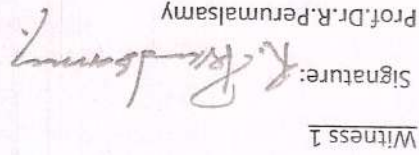 Witness 1
Signature: R. Perumalsamy
Prof.Dr.R.Perumalsamy